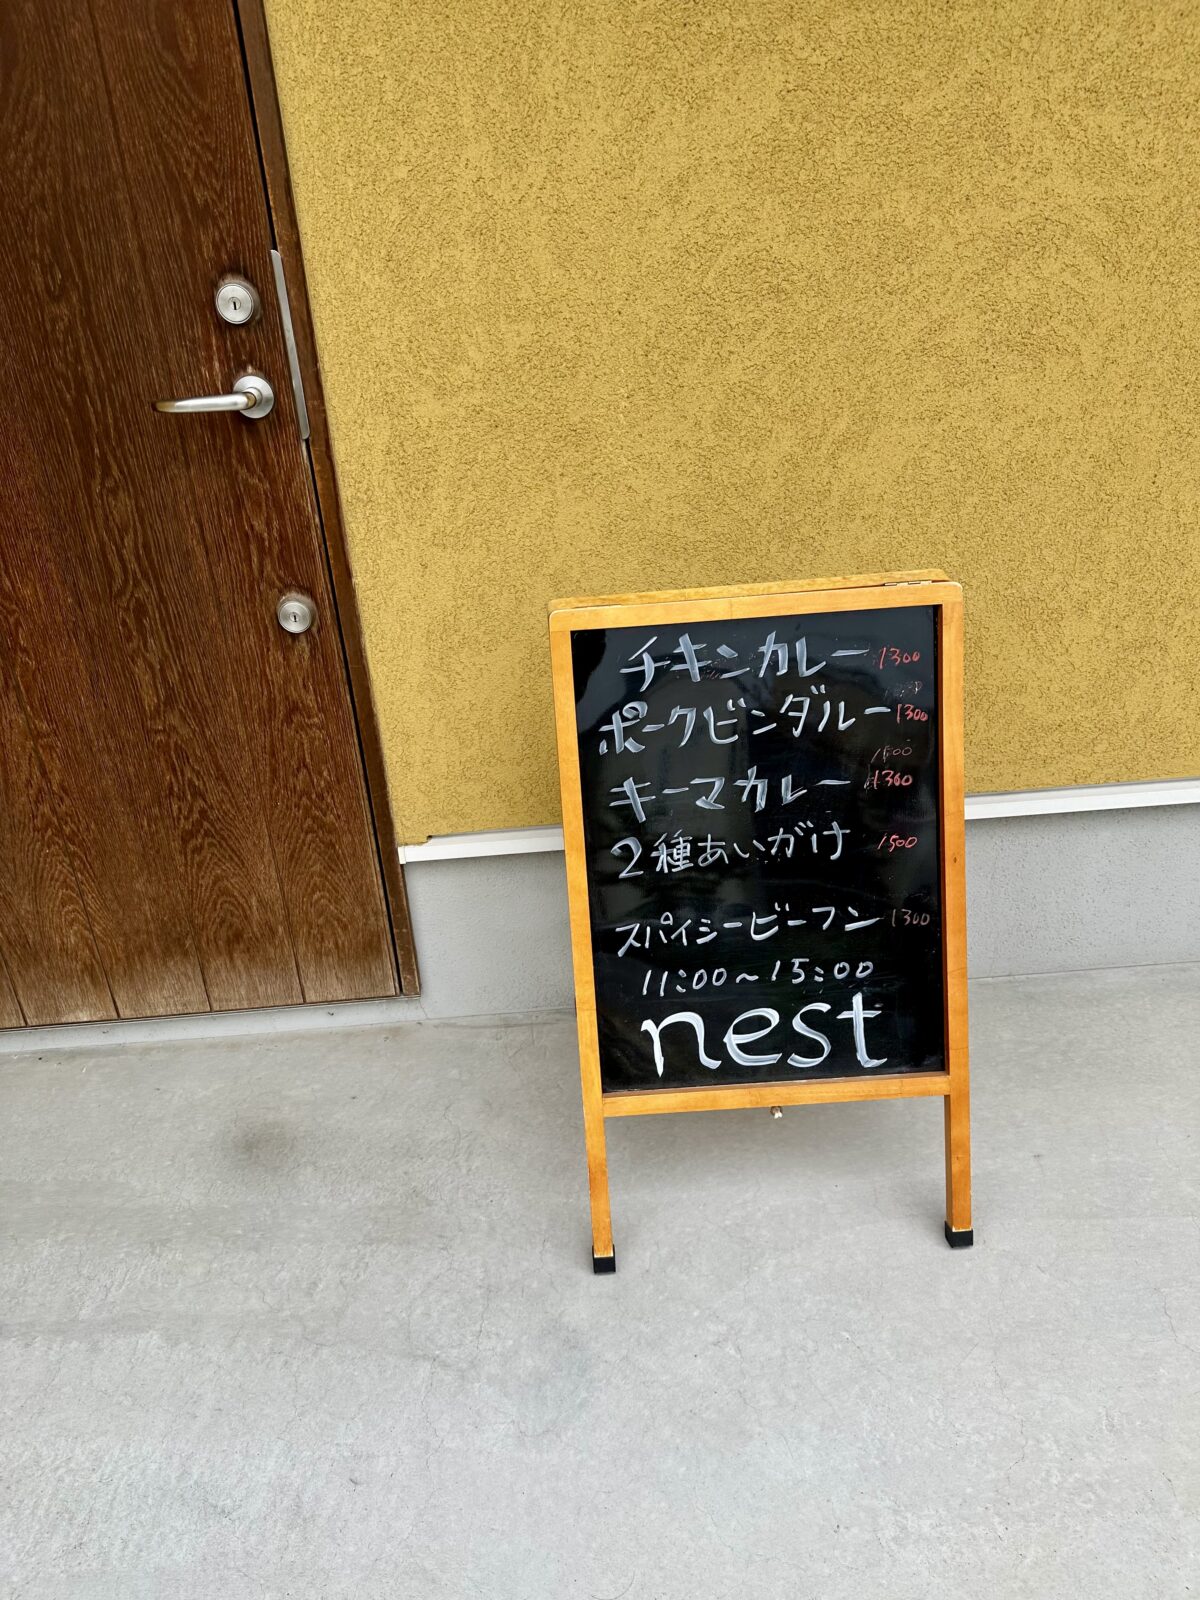 チキンカレー 1300
ポークビンダルー 1300
キーマカレー 1300
2種あいがけ 1500
スパイシービーフン 1300
11:00~15:00
nest